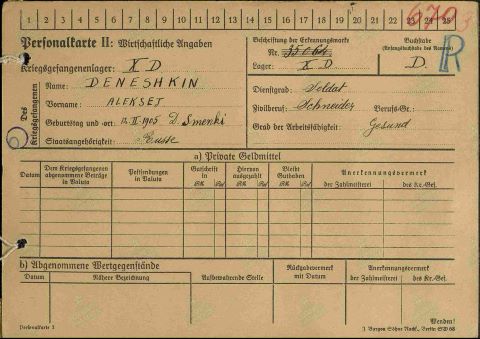 1 2 3 4 5 6 7 8 9 10 11 12 13 14 15 16 17 18 19 20 21 22 23 24 25
Personalkarte II: Wirtschaftliche Angaben
Beschriftung der Erkennungsmarke
Nr. 35066
Lager: X D
Buchstabe
(Anfangsbuchstabe des Namens)
D.
R
Kriegsgefangenenlager: X D
Des Kriegsgefangenen
Name: DENESHKIN
Vorname: ALEKSEJ
Geburtstag und -ort: 12. II 1905 D. Smenki
Staatsangehörigkeit: Russe
Dienstgrad: Soldat
Zivilberuf: Schneider Berufs-Gr.
Grad der Arbeitsfähigkeit: Gesund
a) Private Geldmittel
Datum
Dem Kriegsgefangenen abgenommene Beträge in Valuta
Gutschrift in
Hiervon ausgezahlt
Bleibt Guthaben
Anerkennungsvermerk
der Zahlmeisterei
des Kr.-Gef.
b) Abgenommene Wertgegenstände
Datum
Nähere Bezeichnung
Aufbewahrende Stelle
Rückgabevermerk mit Datum
Anerkennungsvermerk
der Zahlmeisterei
des Kr.-Gef.
Wenden!